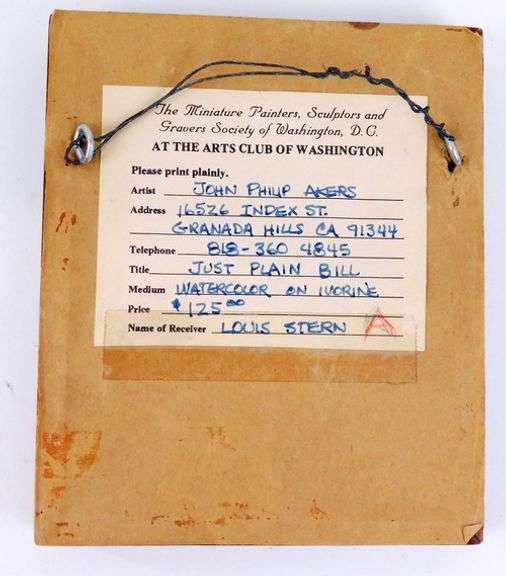 The Miniature Painters, Sculptors and
Gravers Society of Washington, D.C.
AT THE ARTS CLUB OF WASHINGTON
Please print plainly.
Artist JOHN PHILIP AKERS
Address 16526 INDEX ST.
GRANADA HILLS CA 91344
Telephone 818-360 4845
Title JUST PLAIN BILL
Medium WATERCOLOR ON IVORINE
Price $125.00
Name of Receiver LOUIS STERN A